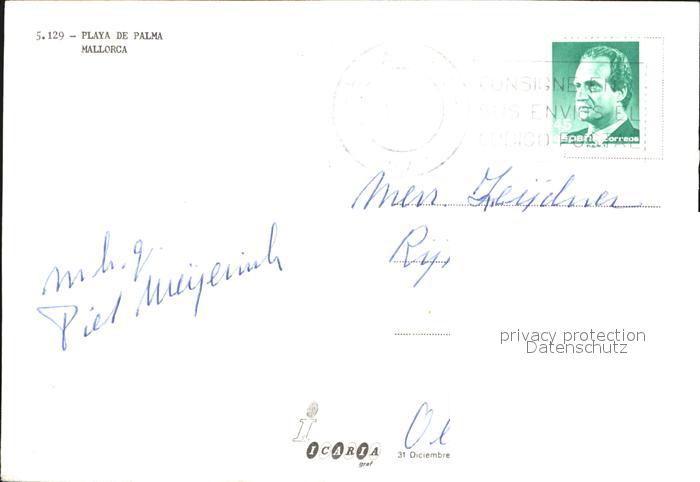 5.129 - PLAYA DE PALMA
MALLORCA
CONSIGNE EN
SUS ENVIOS EL
CODIGO POSTAL
45
España correos
m.h.g.
Piet Meijerink
privacy protection
Datenschutz
ICARIA
graf
31 Diciembre